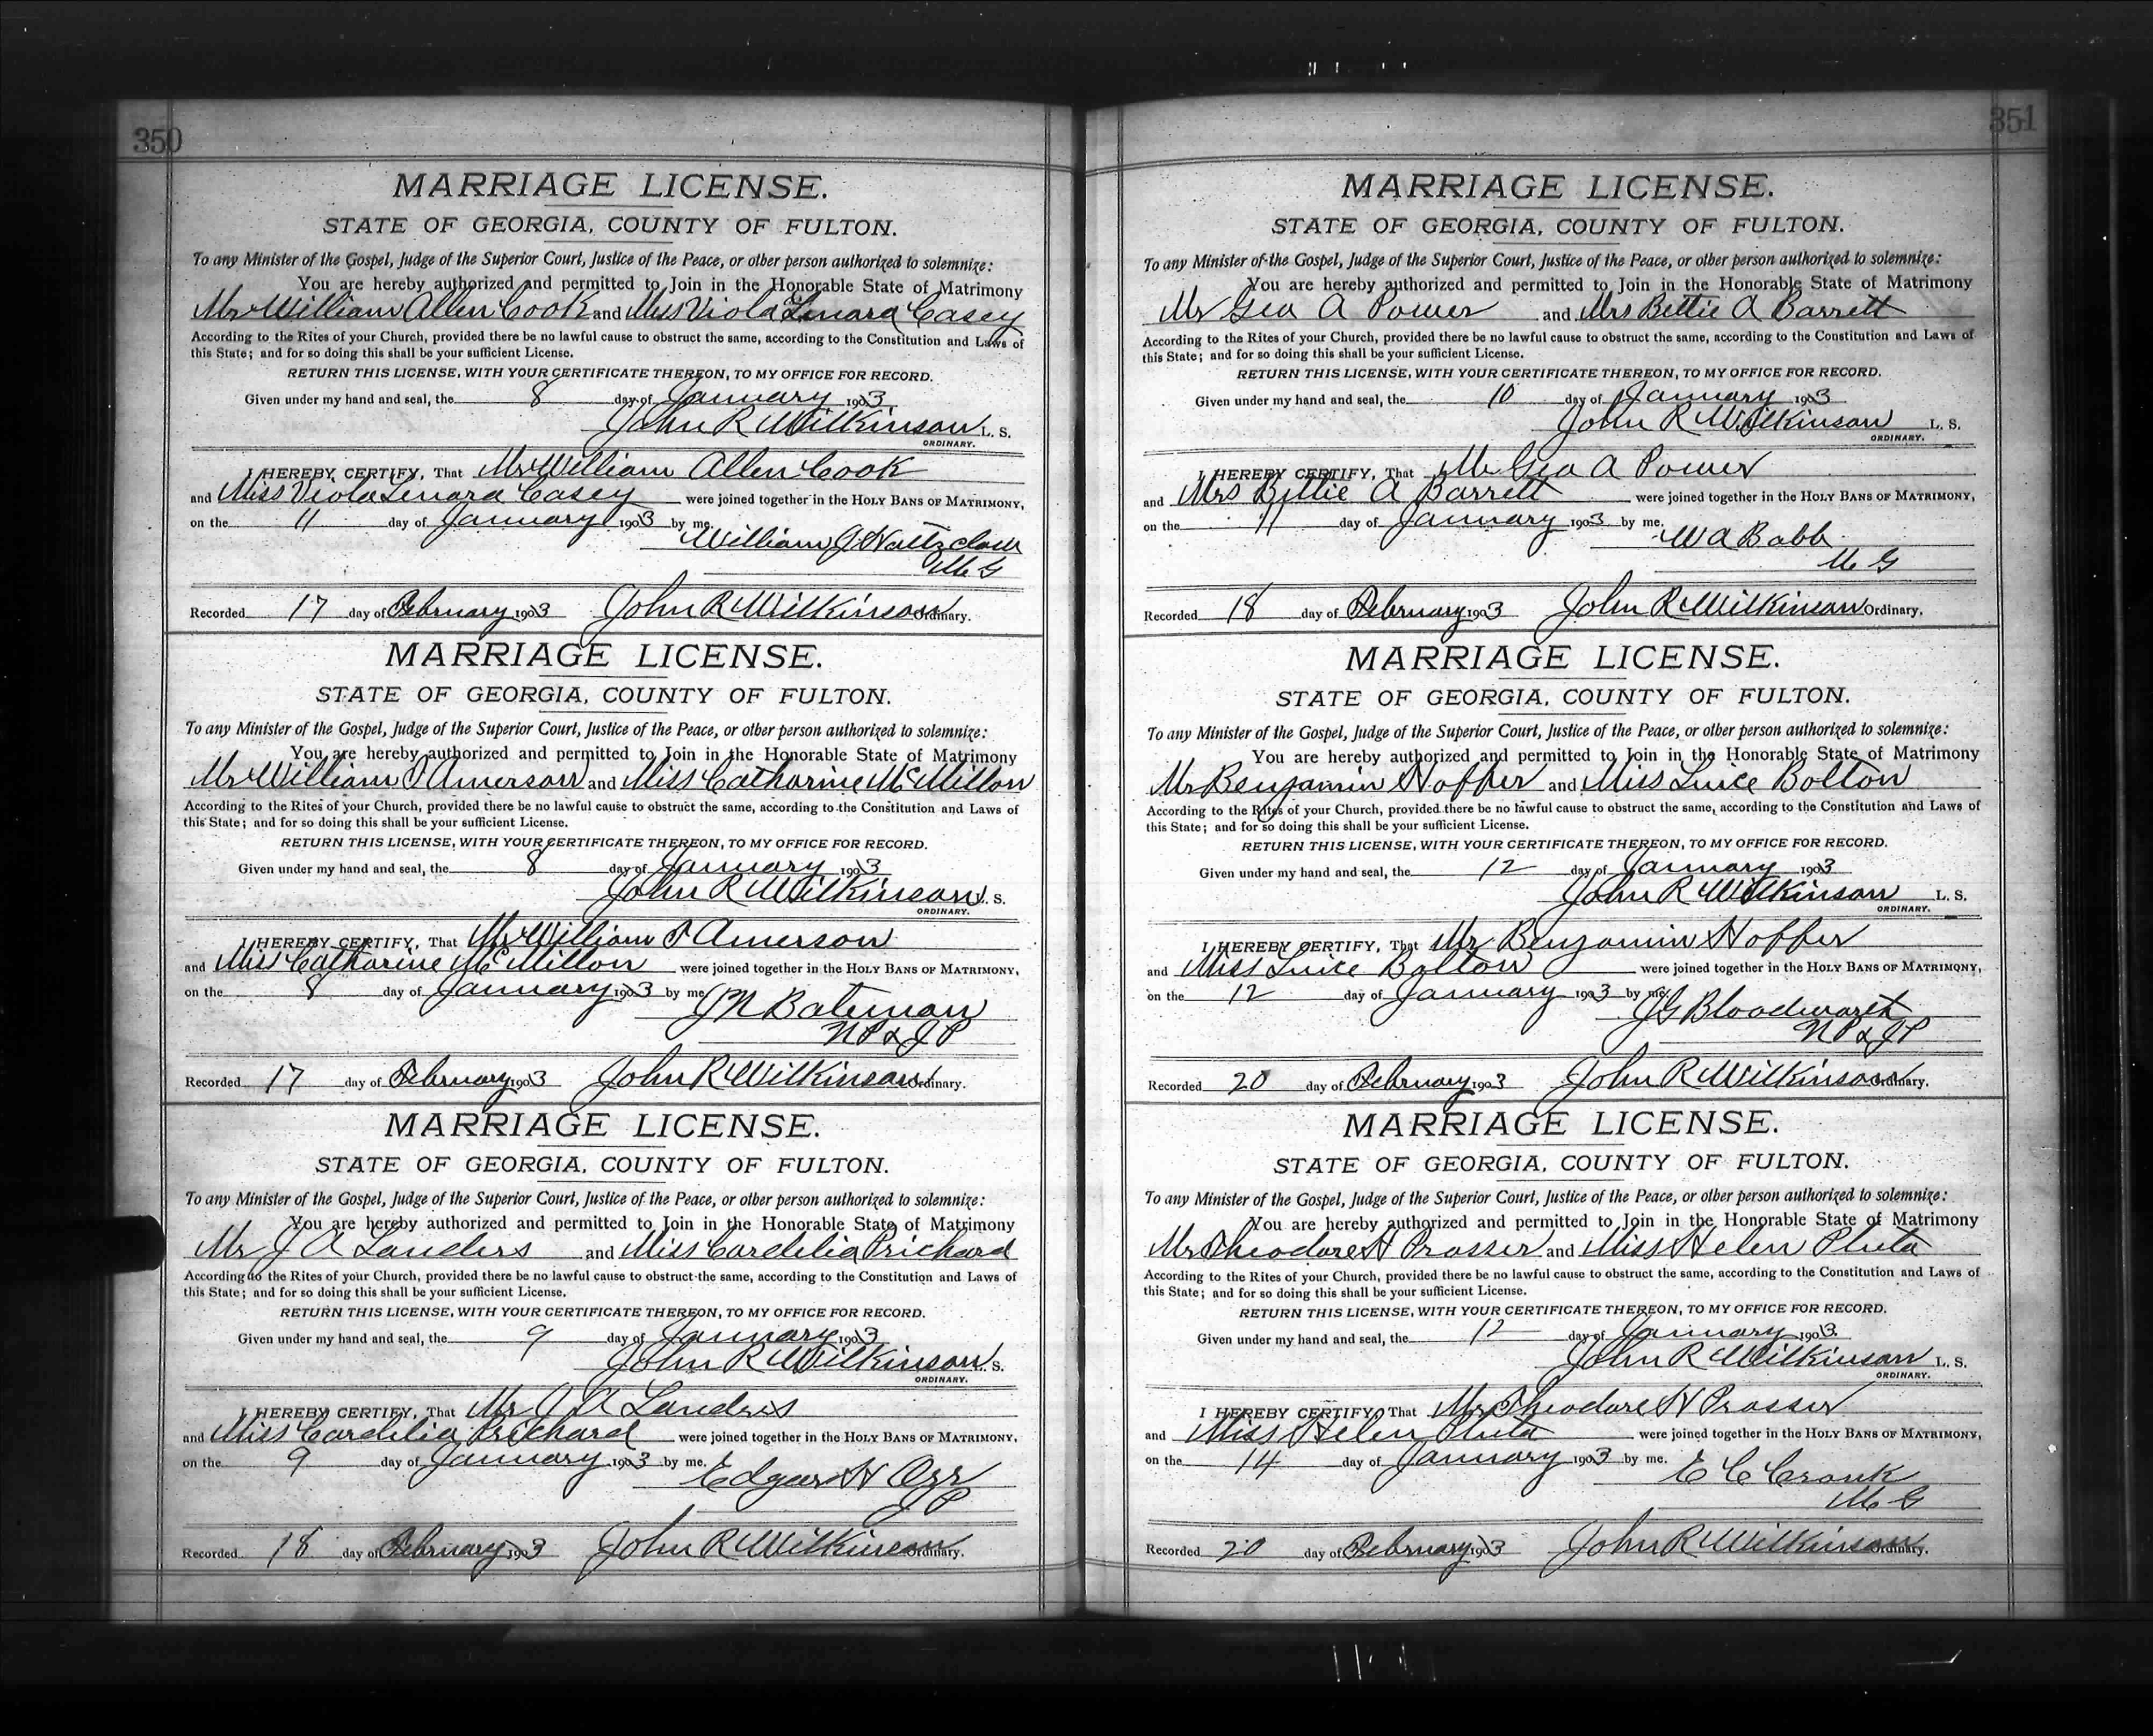 350
MARRIAGE LICENSE.
STATE OF GEORGIA, COUNTY OF FULTON.
To any Minister of the Gospel, Judge of the Superior Court, Justice of the Peace, or other person authorized to solemnize:
You are hereby authorized and permitted to Join in the Honorable State of Matrimony
Mr William Allen Cook and Miss Viola Lenara Casey
According to the Rites of your Church, provided there be no lawful cause to obstruct the same, according to the Constitution and Laws of
this State; and for so doing this shall be your sufficient License.
RETURN THIS LICENSE, WITH YOUR CERTIFICATE THEREON, TO MY OFFICE FOR RECORD.
Given under my hand and seal, the 8 day of January 1903
John R Wilkinson L. S.
ORDINARY.
I HEREBY CERTIFY, That Mr William Allen Cook
and Miss Viola Lenara Casey were joined together in the HOLY BANS OF MATRIMONY,
on the 11 day of January 1903 by me.
William J Haltzclaw
M G
Recorded 17 day of February 1903 John R Wilkinson Ordinary.
MARRIAGE LICENSE.
STATE OF GEORGIA, COUNTY OF FULTON.
To any Minister of the Gospel, Judge of the Superior Court, Justice of the Peace, or other person authorized to solemnize:
You are hereby authorized and permitted to Join in the Honorable State of Matrimony
Mr William Amerson and Miss Catharine McMillon
According to the Rites of your Church, provided there be no lawful cause to obstruct the same, according to the Constitution and Laws of
this State; and for so doing this shall be your sufficient License.
RETURN THIS LICENSE, WITH YOUR CERTIFICATE THEREON, TO MY OFFICE FOR RECORD.
Given under my hand and seal, the 8 day of January 1903
John R Wilkinson L. S.
ORDINARY.
I HEREBY CERTIFY, That Mr William Amerson
and Miss Catharine McMillon were joined together in the HOLY BANS OF MATRIMONY,
on the 8 day of January 1903 by me
J N Bateman
N P & J P
Recorded 17 day of February 1903 John R Wilkinson Ordinary.
MARRIAGE LICENSE.
STATE OF GEORGIA, COUNTY OF FULTON.
To any Minister of the Gospel, Judge of the Superior Court, Justice of the Peace, or other person authorized to solemnize:
You are hereby authorized and permitted to Join in the Honorable State of Matrimony
Mr J A Landers and Miss Cardelia Prichard
According to the Rites of your Church, provided there be no lawful cause to obstruct the same, according to the Constitution and Laws of
this State; and for so doing this shall be your sufficient License.
RETURN THIS LICENSE, WITH YOUR CERTIFICATE THEREON, TO MY OFFICE FOR RECORD.
Given under my hand and seal, the 9 day of January 1903
John R Wilkinson L. S.
ORDINARY.
I HEREBY CERTIFY, That Mr J A Landers
and Miss Cardelia Prichard were joined together in the HOLY BANS OF MATRIMONY,
on the 9 day of January 1903 by me.
Edgar H Orr
J P
Recorded 18 day of February 1903 John R Wilkinson Ordinary.
351
MARRIAGE LICENSE.
STATE OF GEORGIA, COUNTY OF FULTON.
To any Minister of the Gospel, Judge of the Superior Court, Justice of the Peace, or other person authorized to solemnize:
You are hereby authorized and permitted to Join in the Honorable State of Matrimony
Mr Geo A Power and Mrs Bettie A Barrett
According to the Rites of your Church, provided there be no lawful cause to obstruct the same, according to the Constitution and Laws of
this State; and for so doing this shall be your sufficient License.
RETURN THIS LICENSE, WITH YOUR CERTIFICATE THEREON, TO MY OFFICE FOR RECORD.
Given under my hand and seal, the 10 day of January 1903
John R Wilkinson L. S.
ORDINARY.
I HEREBY CERTIFY, That Mr Geo A Power
and Mrs Bettie A Barrett were joined together in the HOLY BANS OF MATRIMONY,
on the 11 day of January 1903 by me.
W A Babb
M G
Recorded 18 day of February 1903 John R Wilkinson Ordinary.
MARRIAGE LICENSE.
STATE OF GEORGIA, COUNTY OF FULTON.
To any Minister of the Gospel, Judge of the Superior Court, Justice of the Peace, or other person authorized to solemnize:
You are hereby authorized and permitted to Join in the Honorable State of Matrimony
Mr Benjamin Hoffer and Miss Luice Bolton
According to the Rites of your Church, provided there be no lawful cause to obstruct the same, according to the Constitution and Laws of
this State; and for so doing this shall be your sufficient License.
RETURN THIS LICENSE, WITH YOUR CERTIFICATE THEREON, TO MY OFFICE FOR RECORD.
Given under my hand and seal, the 12 day of January 1903
John R Wilkinson L. S.
ORDINARY.
I HEREBY CERTIFY, That Mr Benjamin Hoffer
and Miss Luice Bolton were joined together in the HOLY BANS OF MATRIMONY,
on the 12 day of January 1903 by me.
J G Bloodworth
N P & J P
Recorded 20 day of February 1903 John R Wilkinson Ordinary.
MARRIAGE LICENSE.
STATE OF GEORGIA, COUNTY OF FULTON.
To any Minister of the Gospel, Judge of the Superior Court, Justice of the Peace, or other person authorized to solemnize:
You are hereby authorized and permitted to Join in the Honorable State of Matrimony
Mr Theodore H Prosser and Miss Helen Pluta
According to the Rites of your Church, provided there be no lawful cause to obstruct the same, according to the Constitution and Laws of
this State; and for so doing this shall be your sufficient License.
RETURN THIS LICENSE, WITH YOUR CERTIFICATE THEREON, TO MY OFFICE FOR RECORD.
Given under my hand and seal, the 12 day of January 1903.
John R Wilkinson L. S.
ORDINARY.
I HEREBY CERTIFY, That Mr Theodore H Prosser
and Miss Helen Pluta were joined together in the HOLY BANS OF MATRIMONY,
on the 14 day of January 1903 by me.
E C Cronk
M G
Recorded 20 day of February 1903 John R Wilkinson Ordinary.